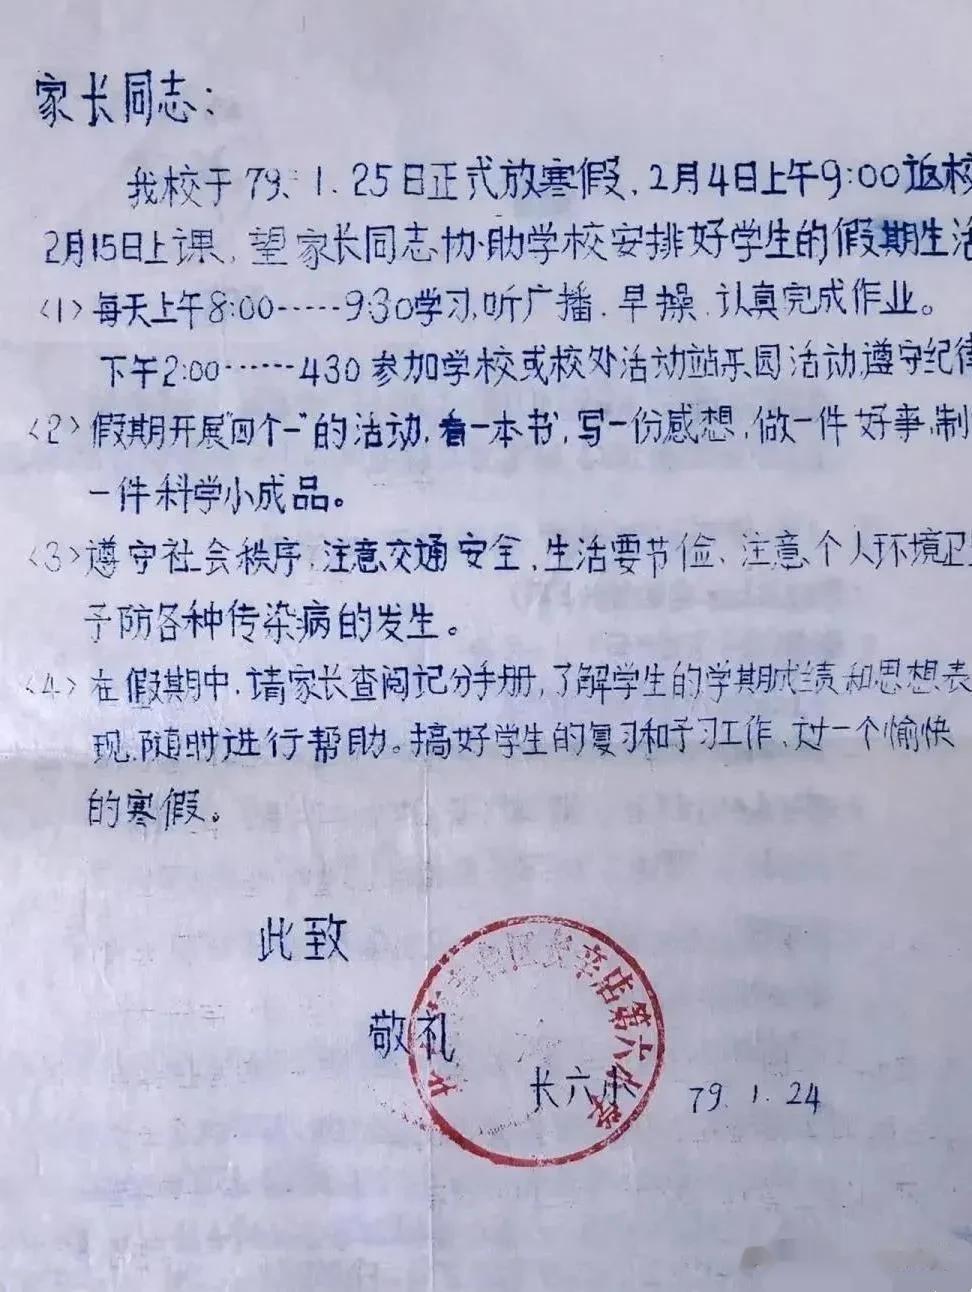 家长同志:
我校于79.1.25日正式放寒假,2月4日上午9:00返校
2月15日上课,望家长同志协助学校安排好学生的假期生活
<1>每天上午8:00·····930学习,听广播、早操、认真完成作业。
下午2:00······430参加学校或校处活动站乐园活动,遵守纪律
<2>假期开展"四个一"的活动,看一本书,写一份感想,做一件好事,制
一件科学小成品。
<3>遵守社会秩序,注意交通安全,生活要节俭、注意个人环境卫
予防各种传染病的发生。
<4>在假期中,请家长查阅记分手册,了解学生的学期成绩和思想表
现,随时进行帮助。搞好学生的复习和予习工作、过一个愉快
的寒假。
此致
敬礼
区长辛店第六小学
长六小 79.1.24